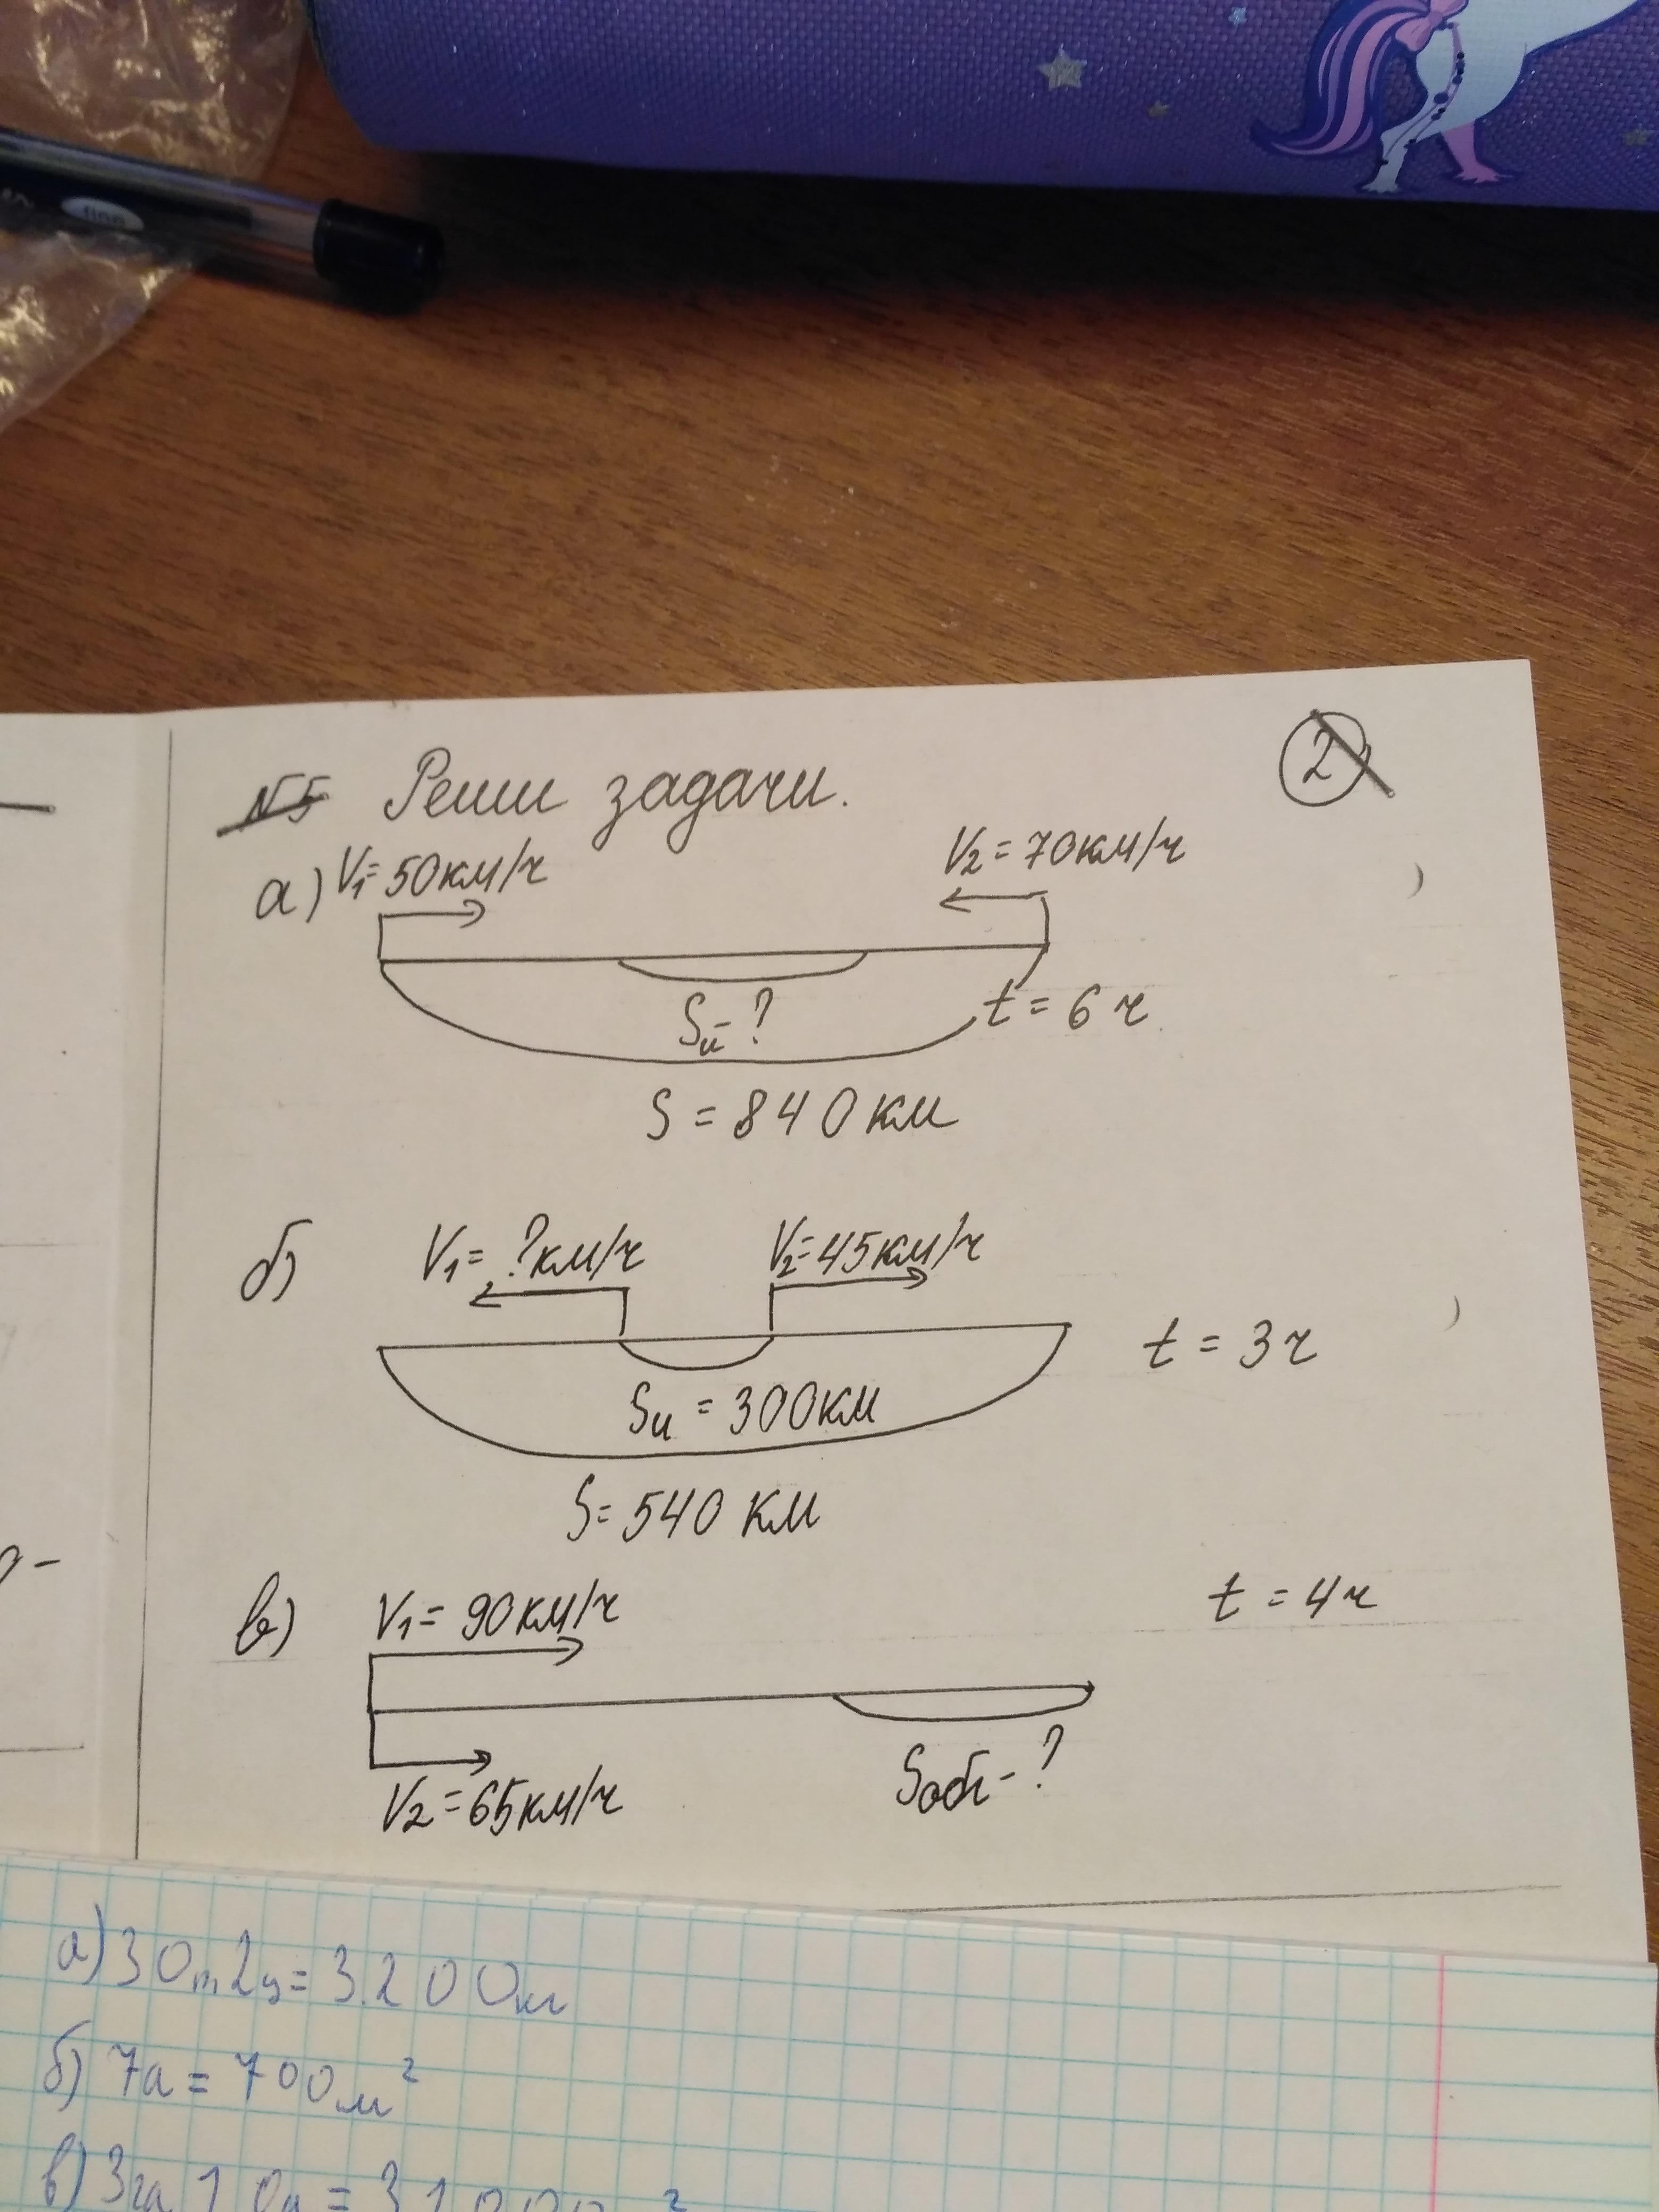 fine
№5 Реши задачи.
2
а) V₁=50км/ч
V₂=70км/ч
Sи-?
t=6ч
S=840км
б)
V₁=?км/ч
V₂=45км/ч
t=3ч
Sи=300км
S=540км
в)
V₁=90км/ч
t=4ч
V₂=65км/ч
а) 30т2ц=3.200кг
б) 7а=700м²